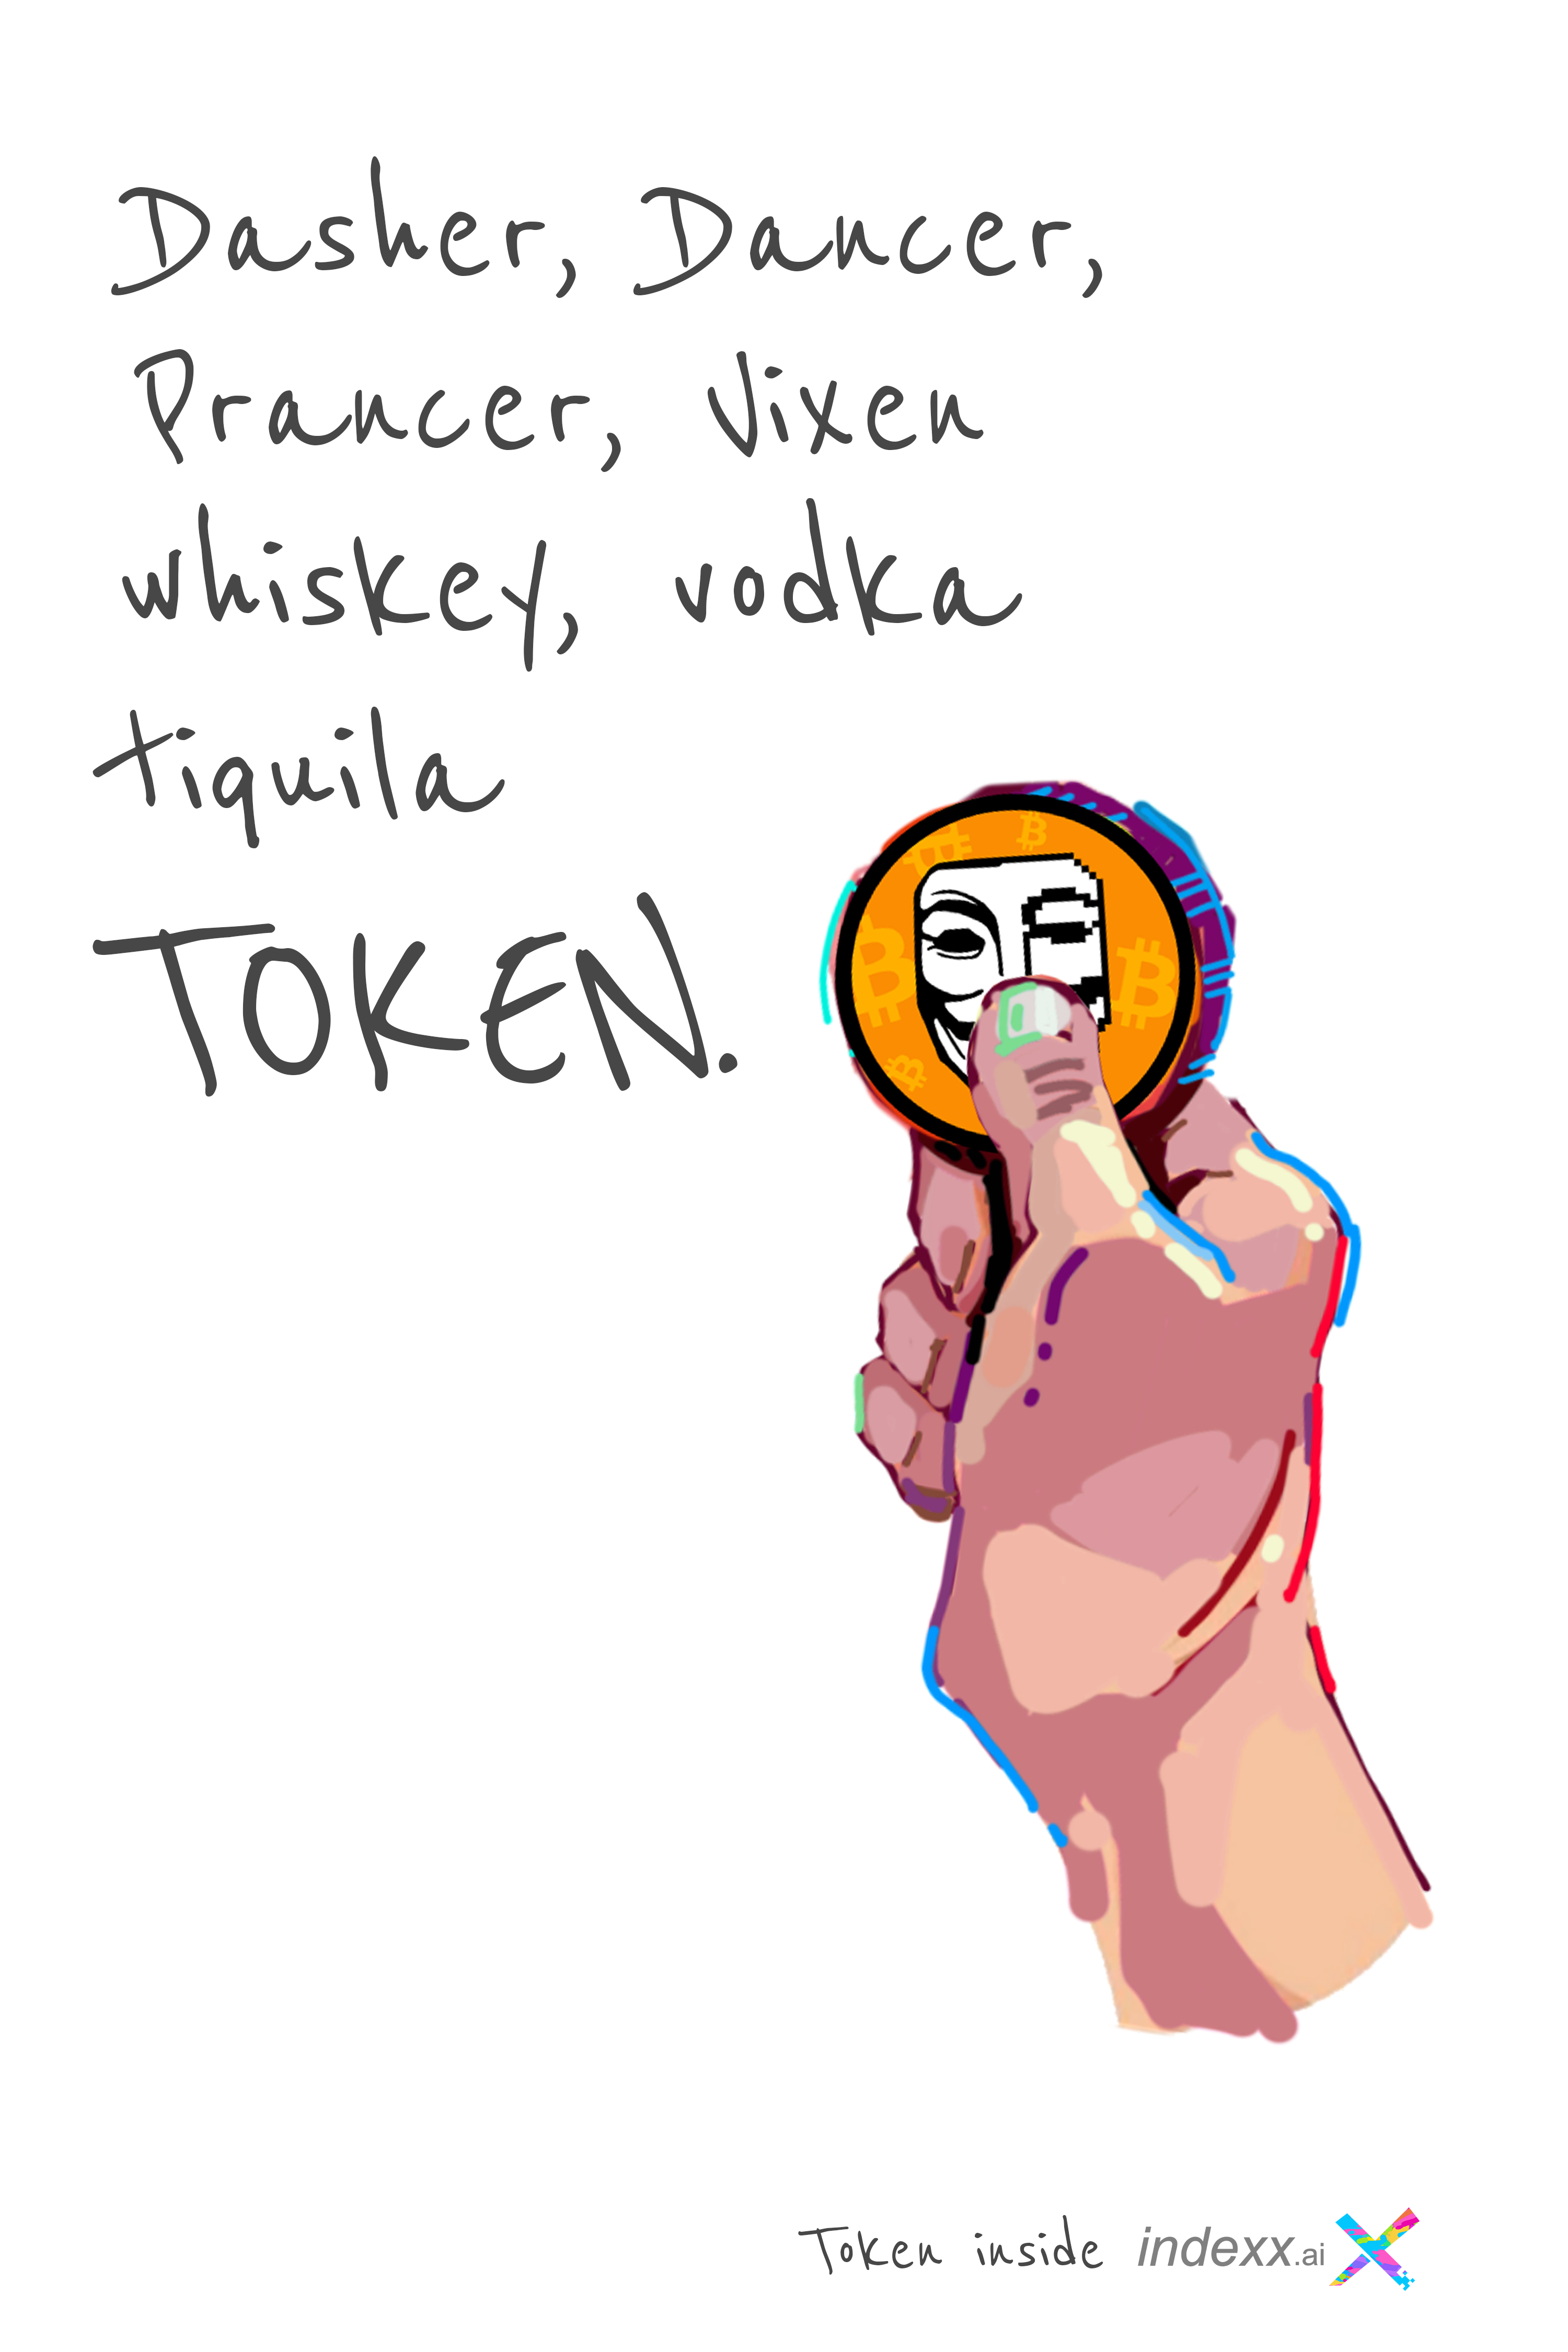 Dasher, Dancer,
Prancer, Vixen
whiskey, vodka
tiquila
TOKEN.
Token inside indexx.ai